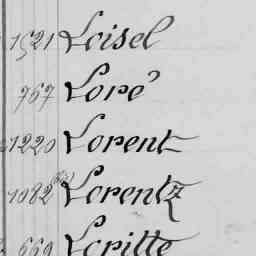 1521 Loisel
967 Loré
1220 Lorent
1082 Lorentz
669 Loritte